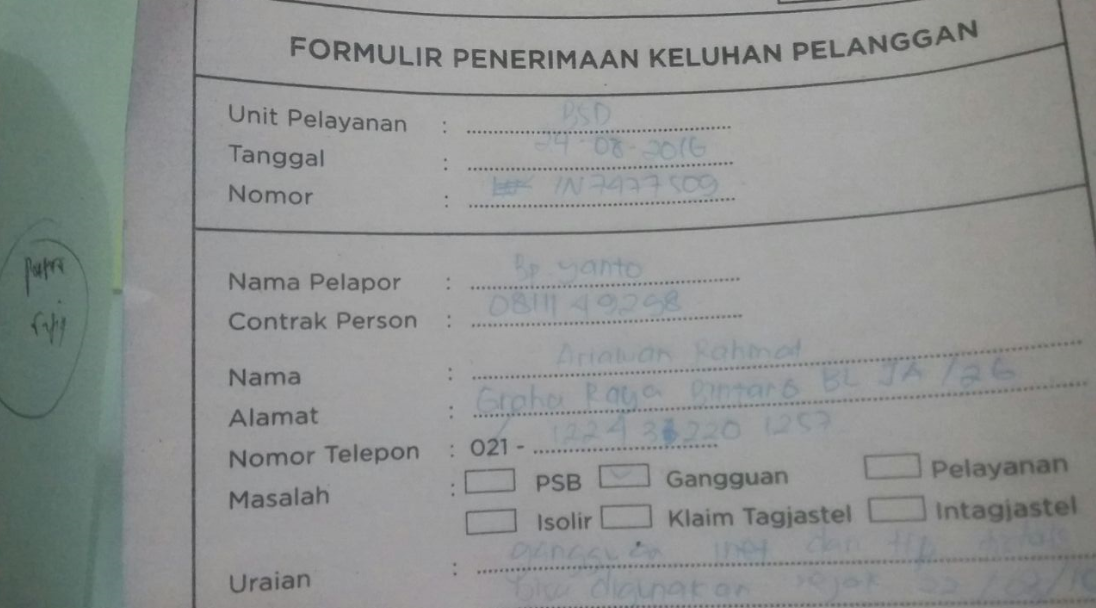 FORMULIR PENERIMAAN KELUHAN PELANGGAN
Unit Pelayanan : BSD
Tanggal : 24-08-2016
Nomor : IN7477509
Nama Pelapor : Bp yanto
Contrak Person : 08111 49298
Nama : Ariawan Rahmat
Alamat : Graha Raya Bintaro BL JA /26
Nomor Telepon : 021 - 220 1257
Masalah : PSB Gangguan Pelayanan
Isolir Klaim Tagjastel Intagjastel
Uraian : gangguan inet dan tlp tidak
bisa digunakan sejak